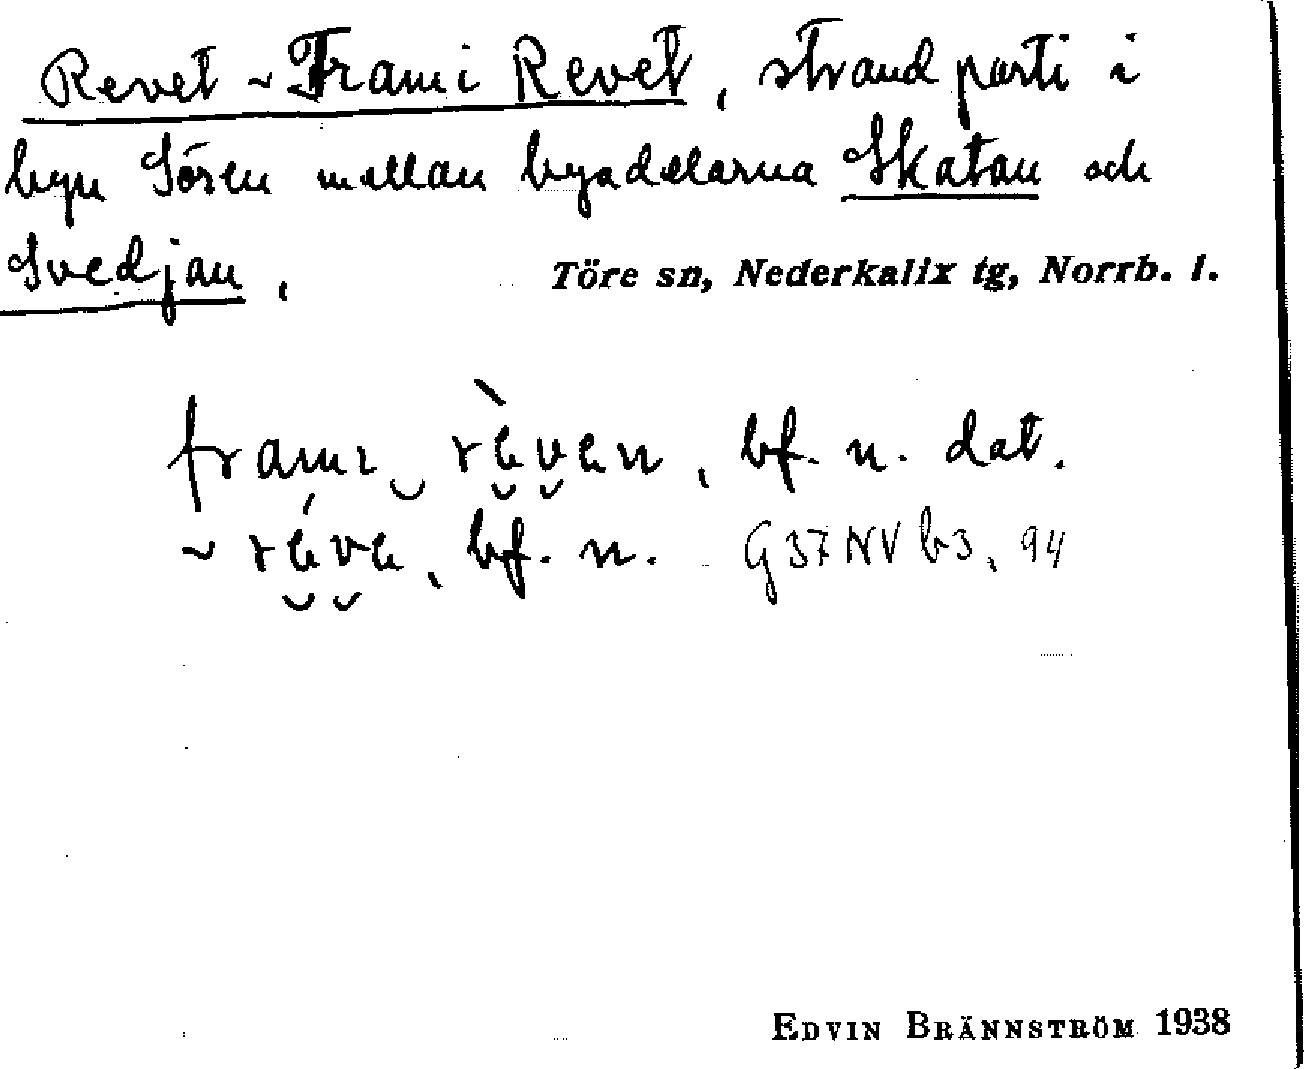 Revet ~ Fram i Revet, strandparti i
byn Sören mellan byadelarna Skatan och
Svedjan.
Töre sn, Nederkalix tg, Norrb. l.
framɪ‿ rèven, bf. n. dat.
~ réve, bf. n. G37NV b3, 94
EDVIN BRÄNNSTRÖM 1938